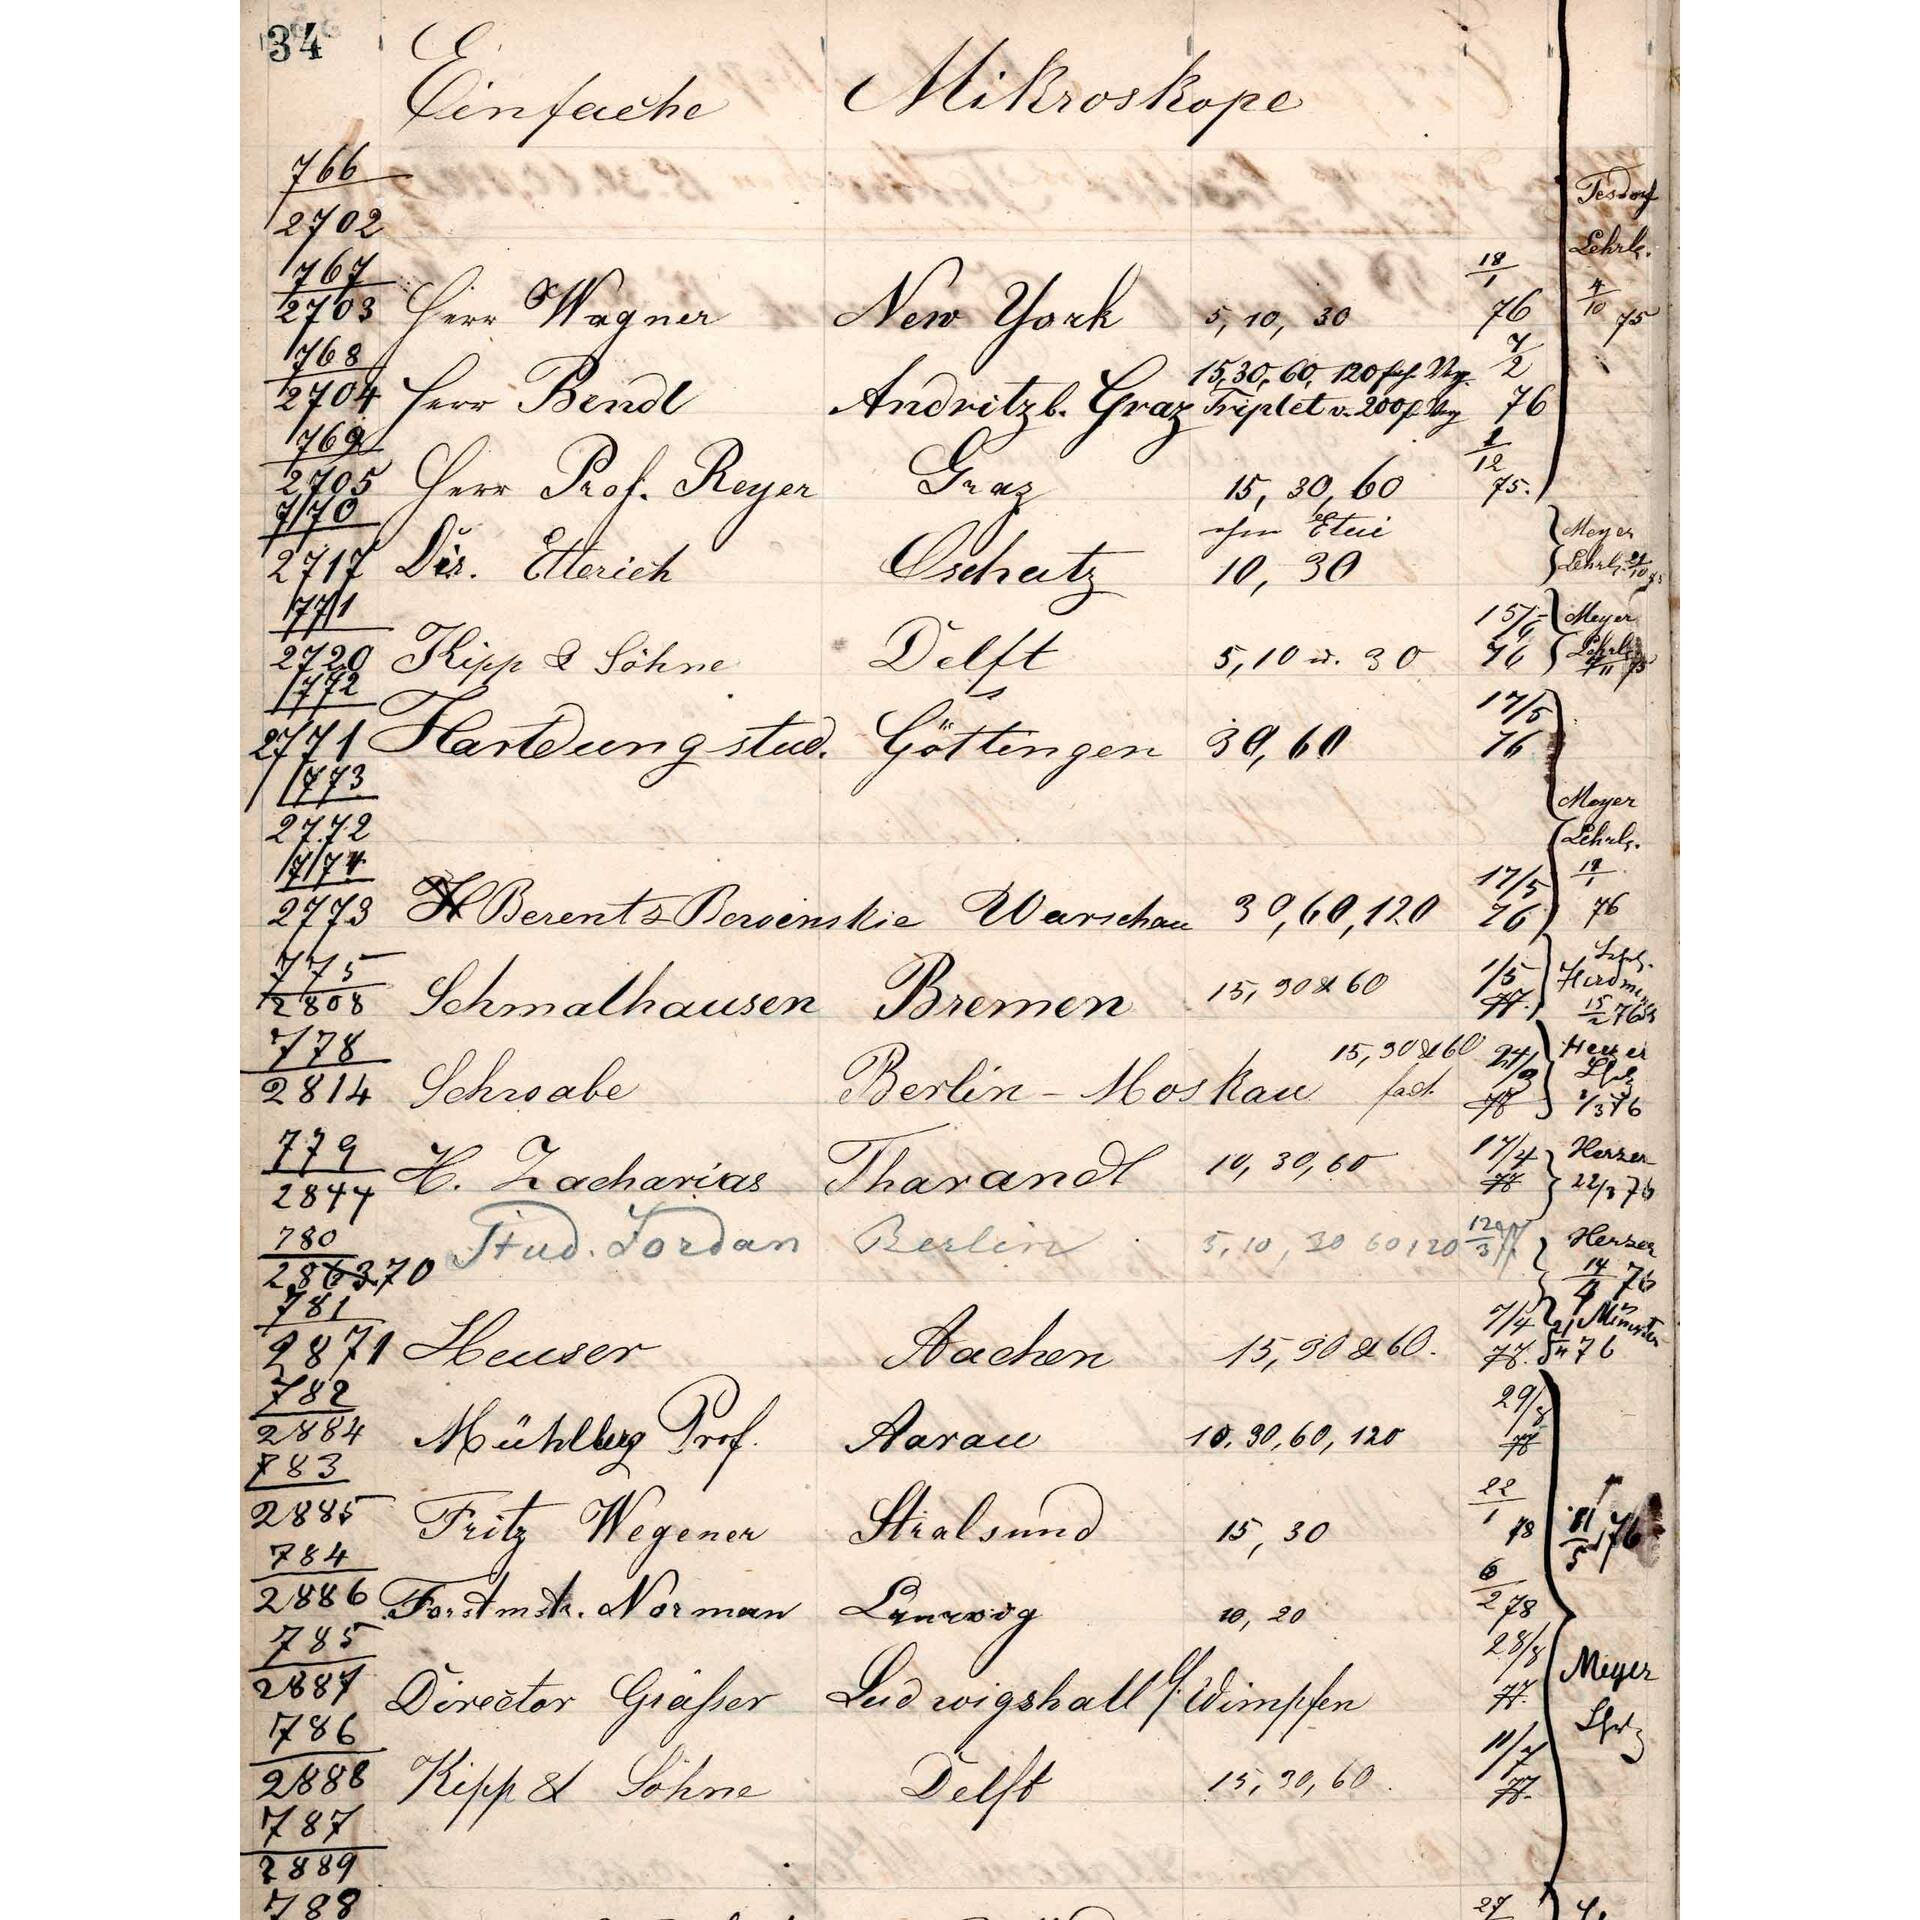 34
Einfache Mikroskope
766
2702
Tesdorf
Lehrl.
4/10 75
767
2703 Herr Wagner New York 5, 10, 30 18/1 76
768
2704 Herr Bendl Andritz b. Graz 15, 30, 60, 120 fch. Vrg. 7/2 76
Triplet v. 200 f. Vrg
769
2705 Herr Prof. Reyer Graz 15, 30, 60 2/12 75.
770
2717 Dir. Etterich Oschatz 10, 30
Etui
Meyer
Lehrl. 21/10
771
2720 Kipp & Söhne Delft 5, 10 u. 30 15/6 76
Meyer
Lehrl.
772
2771 Hartdung stud. Göttingen 30, 60 17/5 76
773
2772
Meyer
Lehrl.
19/1
76
774
2773 Berent & Warschau 30, 60, 120 17/5 76
775
2808 Schmalhausen Bremen 15, 30 & 60 1/5 77.
15/2 76
778
2814 Schwabe Berlin - Moskau 15, 30 & 60 fach. 24/9 77
3/3 76
779
2844 H. Zacharias Tharandt 10, 30, 60 17/4 77
Herzer
22/3 76
780
2870 Stud. Jordan Berlin 5, 10, 30 60, 120 12/3 77.
Herzer
14/4 76
781
2871 Heuser Aachen 15, 30 & 60. 7/4 77.
76
782
2884 Mühlberg Prof. Aarau 10, 30, 60, 120 29/8 77
783
2885 Fritz Wegener Stralsund 15, 30 22/1 78
31/5 76
784
2886 Forstmstr. Norman 10, 20 6/2 78
785
2887 Director Gräßer Ludwigshall b/ Wimpfen 28/8 77.
Meyer
786
2888 Kipp & Söhne Delft 15, 30, 60. 11/7 77.
787
2889
788
27